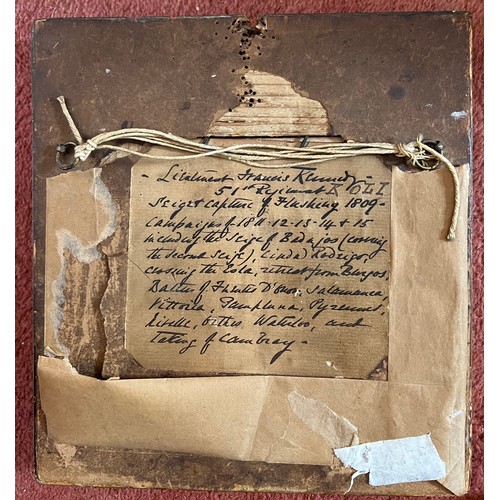 - Lieutenant Francis Kennedy -
51st Regiment K O L I
Seige & capture of Flushing 1809 -
Campaigns of 1811-12-13-14 & 15
including the Seige of Badajos (covering
the second Seige), Ciudad Rodrigo,
crossing the Coa, retreat from Burgos,
Battles of Fuentes D'onor, Salamanca,
Vittoria, Pampluna, Pyrenees,
Nivelle, Orthes, Waterloo, and
taking of Cambray -